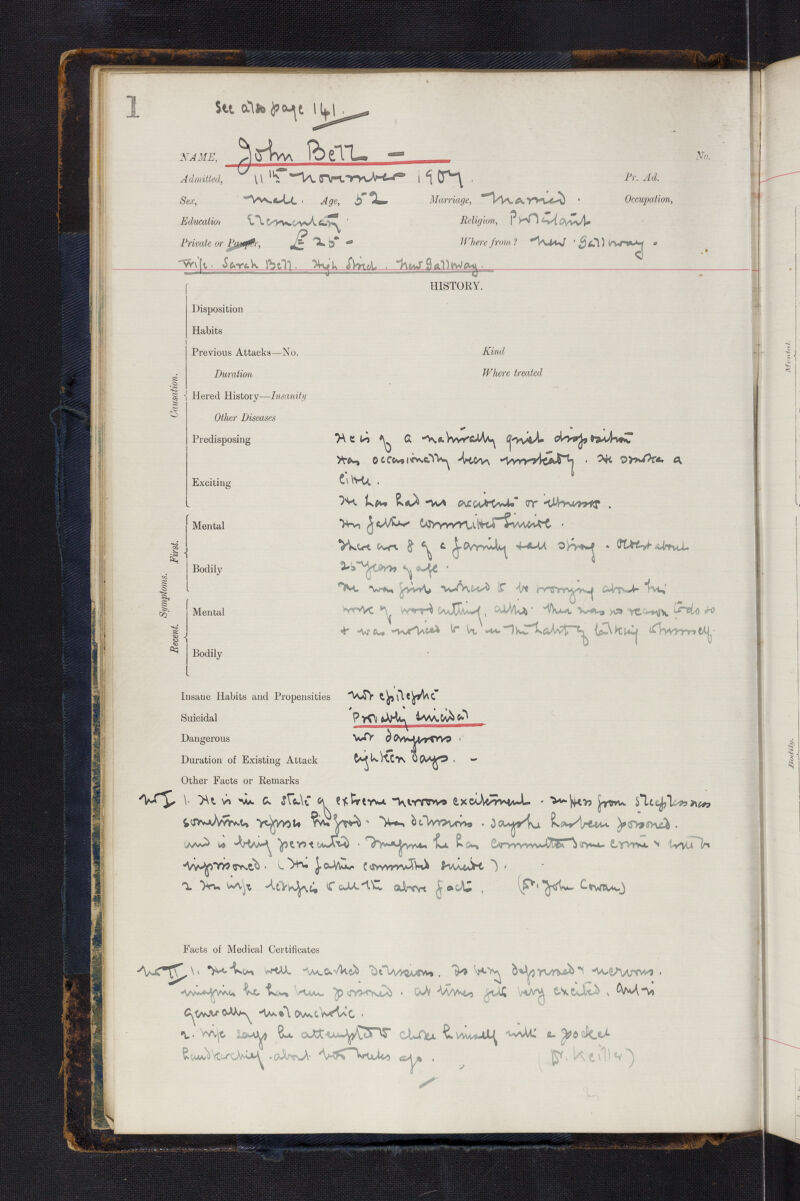 1
See also page 141.
NAME, John Bell
No.
Admitted, 11th November 1907.
Pr. Ad.
Sex, Male. Age, 52 Marriage, Married. Occupation,
Education Elementary. Religion, Protestant
Private or Pauper, £25 Where from? New Galloway.
Wife. Sarah Bell. High Street. New Galloway.
HISTORY.
Causation.
Disposition
Habits
Previous Attacks—No. Kind
Duration Where treated
Hered History—Insanity
Other Diseases
Predisposing He is of a naturally quiet disposition
Has occasionally been unsteady. He smokes a
Exciting little.
He has had no accidents or illnesses.
Symptoms.
First.
Mental His father committed suicide.
There are 8 of a family & all strong. Oldest about
Bodily 25 years of age.
He was first noticed to be worrying about his
Recent.
Mental work of wood cutting, altho' there was no reason to do so
& was noticed to be in the habit of talking to himself.
Bodily
Insane Habits and Propensities not epileptic
Suicidal Probably suicidal
Dangerous not dangerous.
Duration of Existing Attack eighteen days.
Other Facts or Remarks
1. He is in a state of extreme nervous excitement. Suffers from sleeplessness
sometimes refuses his food. Has delusions. Says he has been poisoned.
and is being persecuted. Imagines he has committed some crime & will be
imprisoned. (His father committed suicide).
2 His wife testifies to all the above facts. (Dr. John Cowan)
Facts of Medical Certificates
1. He has well marked delusions. Is very depressed & nervous.
imagines he has been poisoned. at times gets very excited. And is
generally melancholic.
2. Wife says he attempted to choke himself with a pocket
handkerchief about two weeks ago. (Dr. Keiller)
Mental.
Bodily.